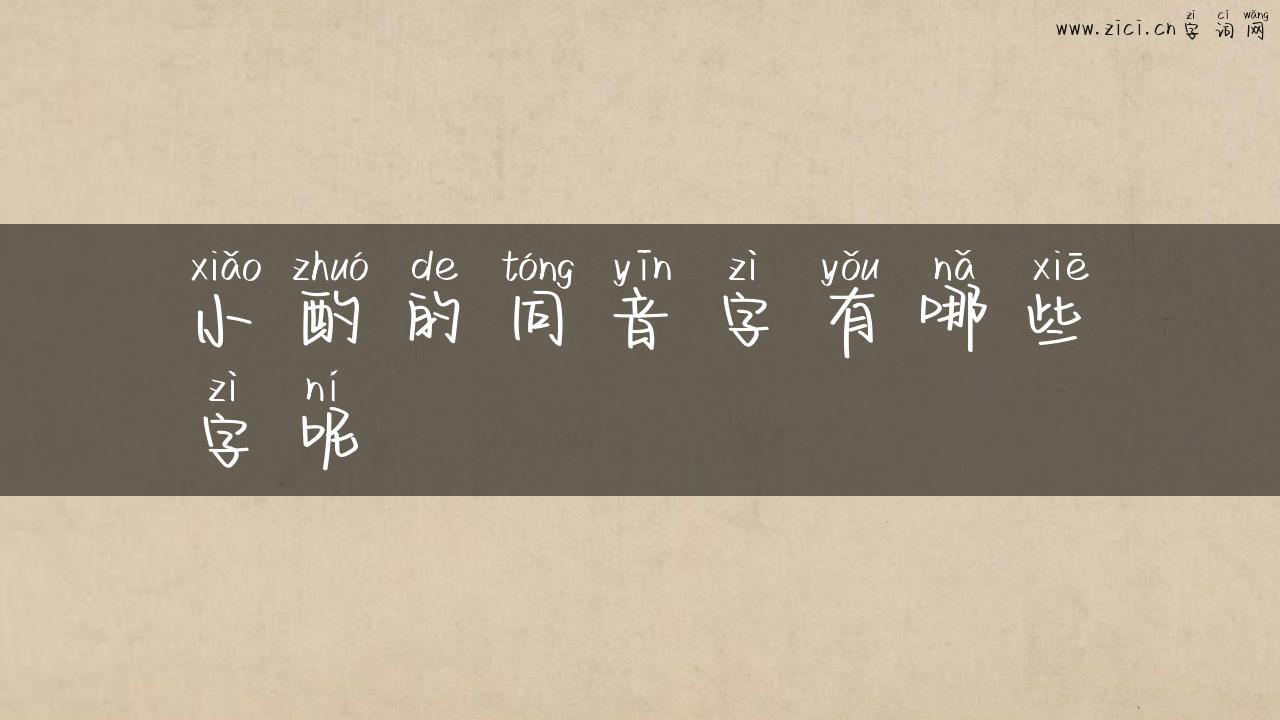 zì cí wǎng
www.zici.cn 字词网
xiǎo zhuó de tóng yīn zì yǒu nǎ xiē
小酌的同音字有哪些
zì ní
字呢